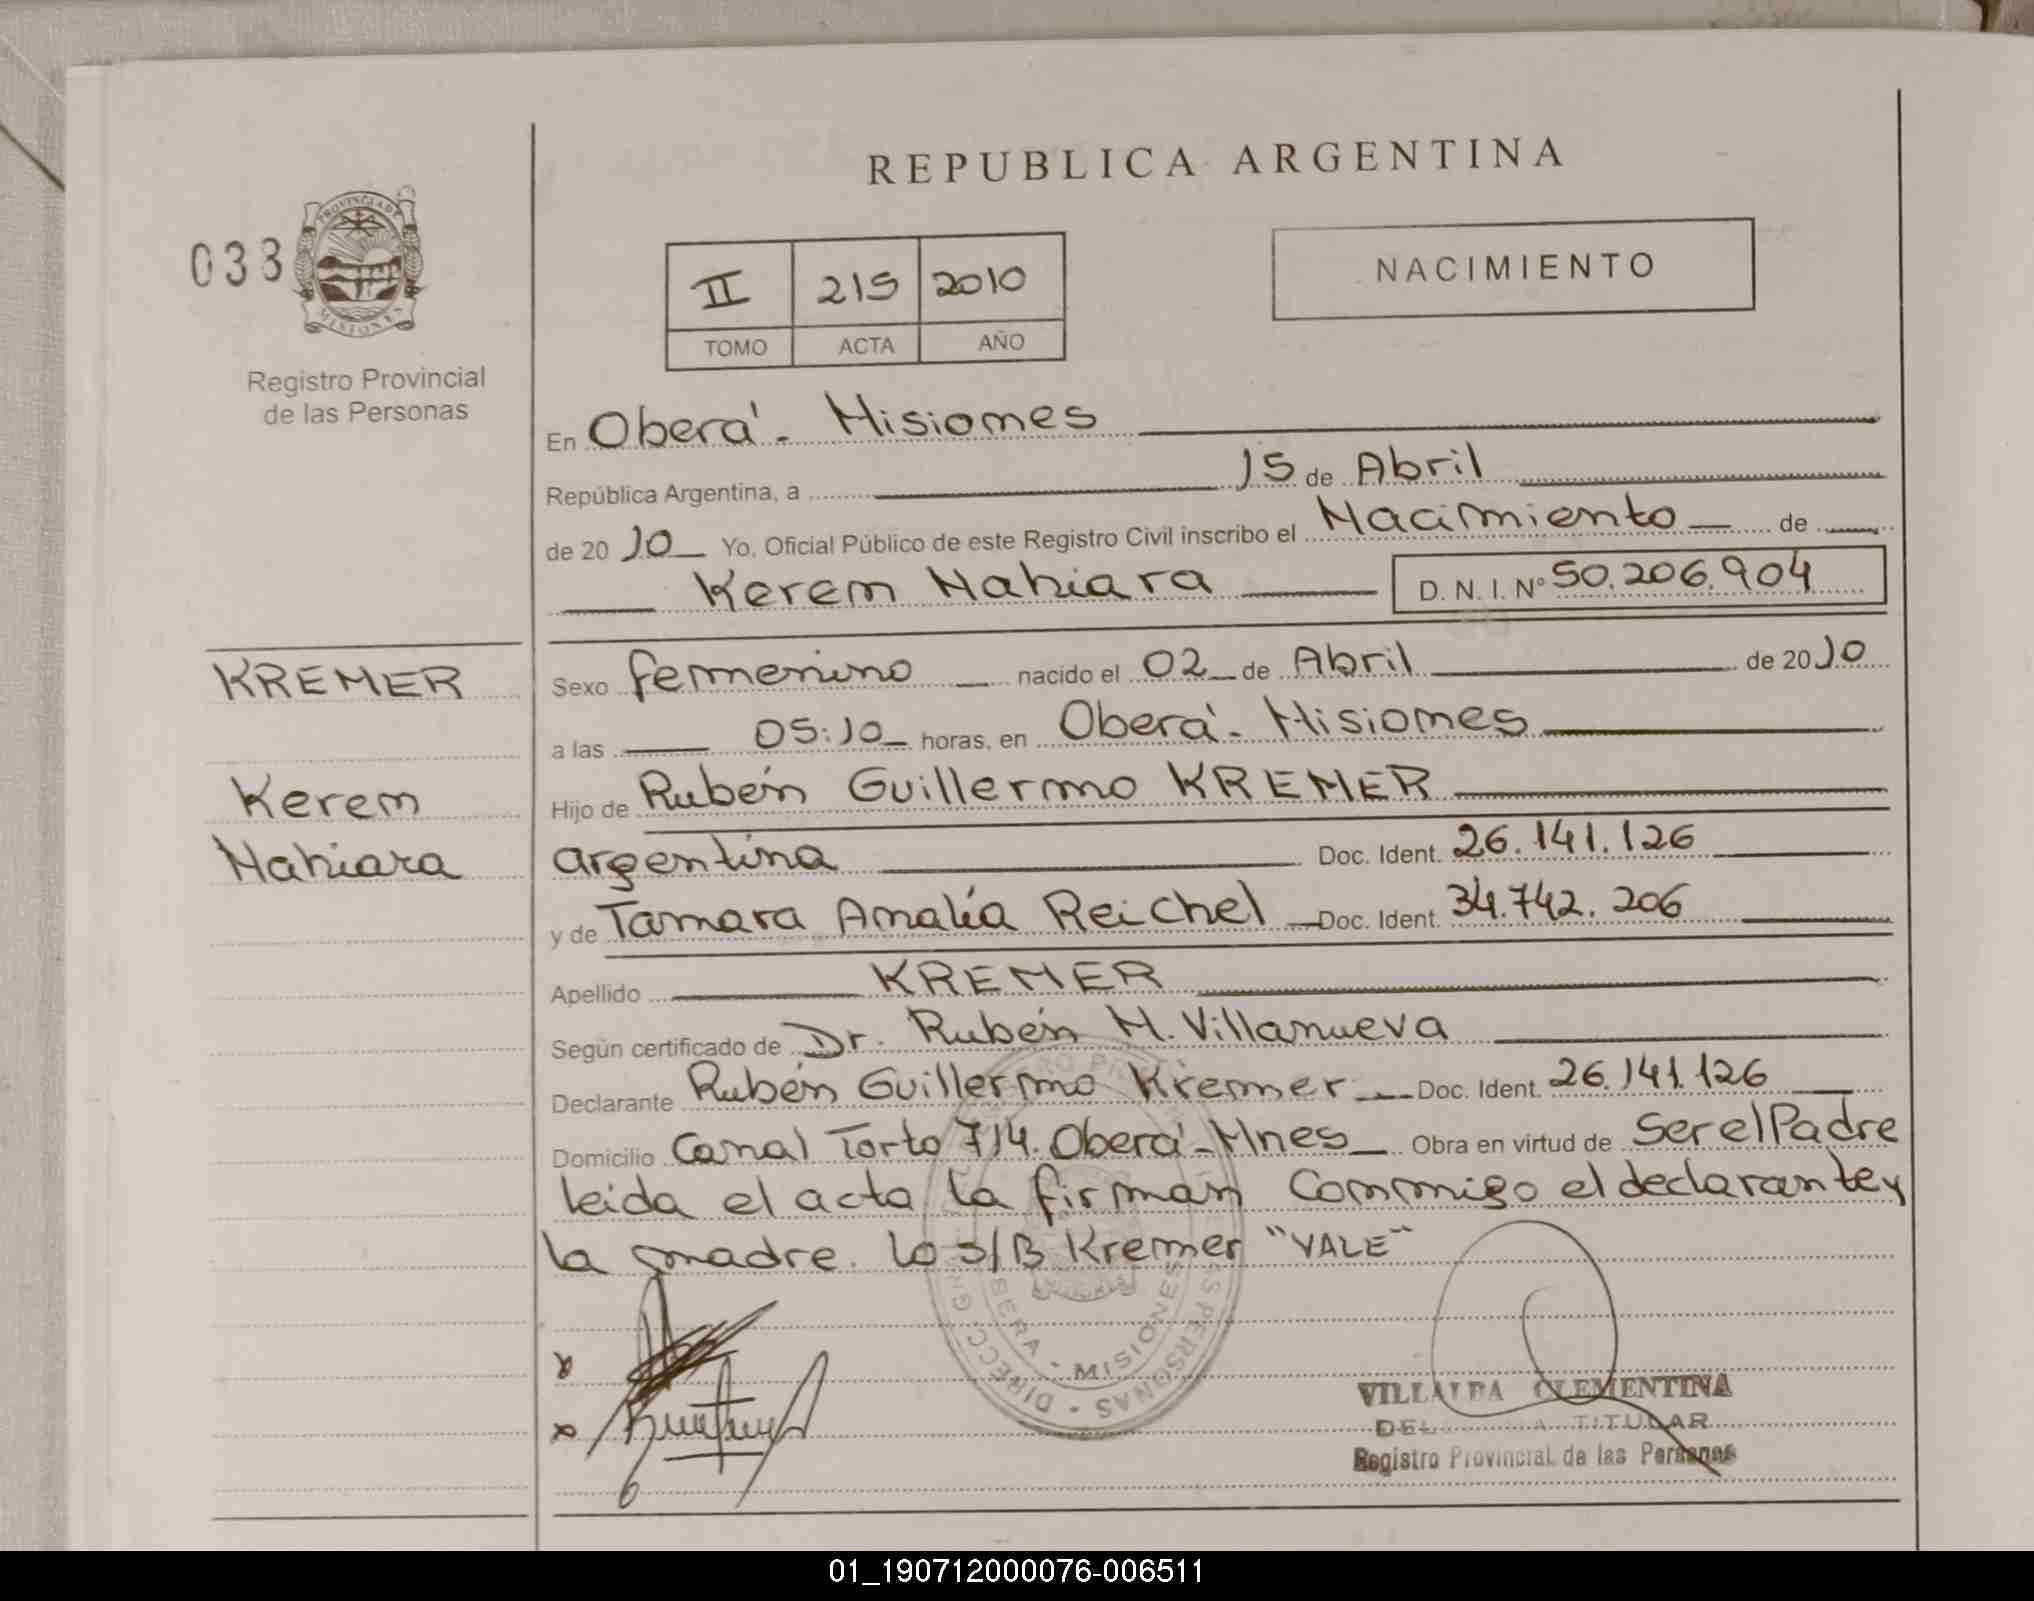 REPUBLICA ARGENTINA
033
PROVINCIA DE
MISIONES
Registro Provincial
de las Personas
II 215 2010
TOMO ACTA AÑO
NACIMIENTO
En Oberá - Misiones
República Argentina, a 15 de Abril
de 20 10 Yo, Oficial Público de este Registro Civil inscribo el Nacimiento de
Kerem Nahiara D. N. I. Nº 50.206.904
KREMER
Kerem
Nahiara
Sexo femenino nacido el 02 de Abril de 20 10
a las 05:10 horas, en Oberá - Misiones
Hijo de Rubén Guillermo KREMER
argentina Doc. Ident. 26.141.126
y de Tamara Amalia Reichel Doc. Ident. 34.742.206
Apellido KREMER
Según certificado de Dr. Rubén M. Villanueva
Declarante Rubén Guillermo Kremer Doc. Ident. 26.141.126
Domicilio Canal Torto 714. Oberá - Mnes Obra en virtud de Ser el Padre
leida el acta la firman conmigo el declarante y
la madre. lo s/B Kremer "VALE"
MISIONES
VILLALBA CLEMENTINA
TITULAR
Registro Provincial de las Personas
01_190712000076-006511